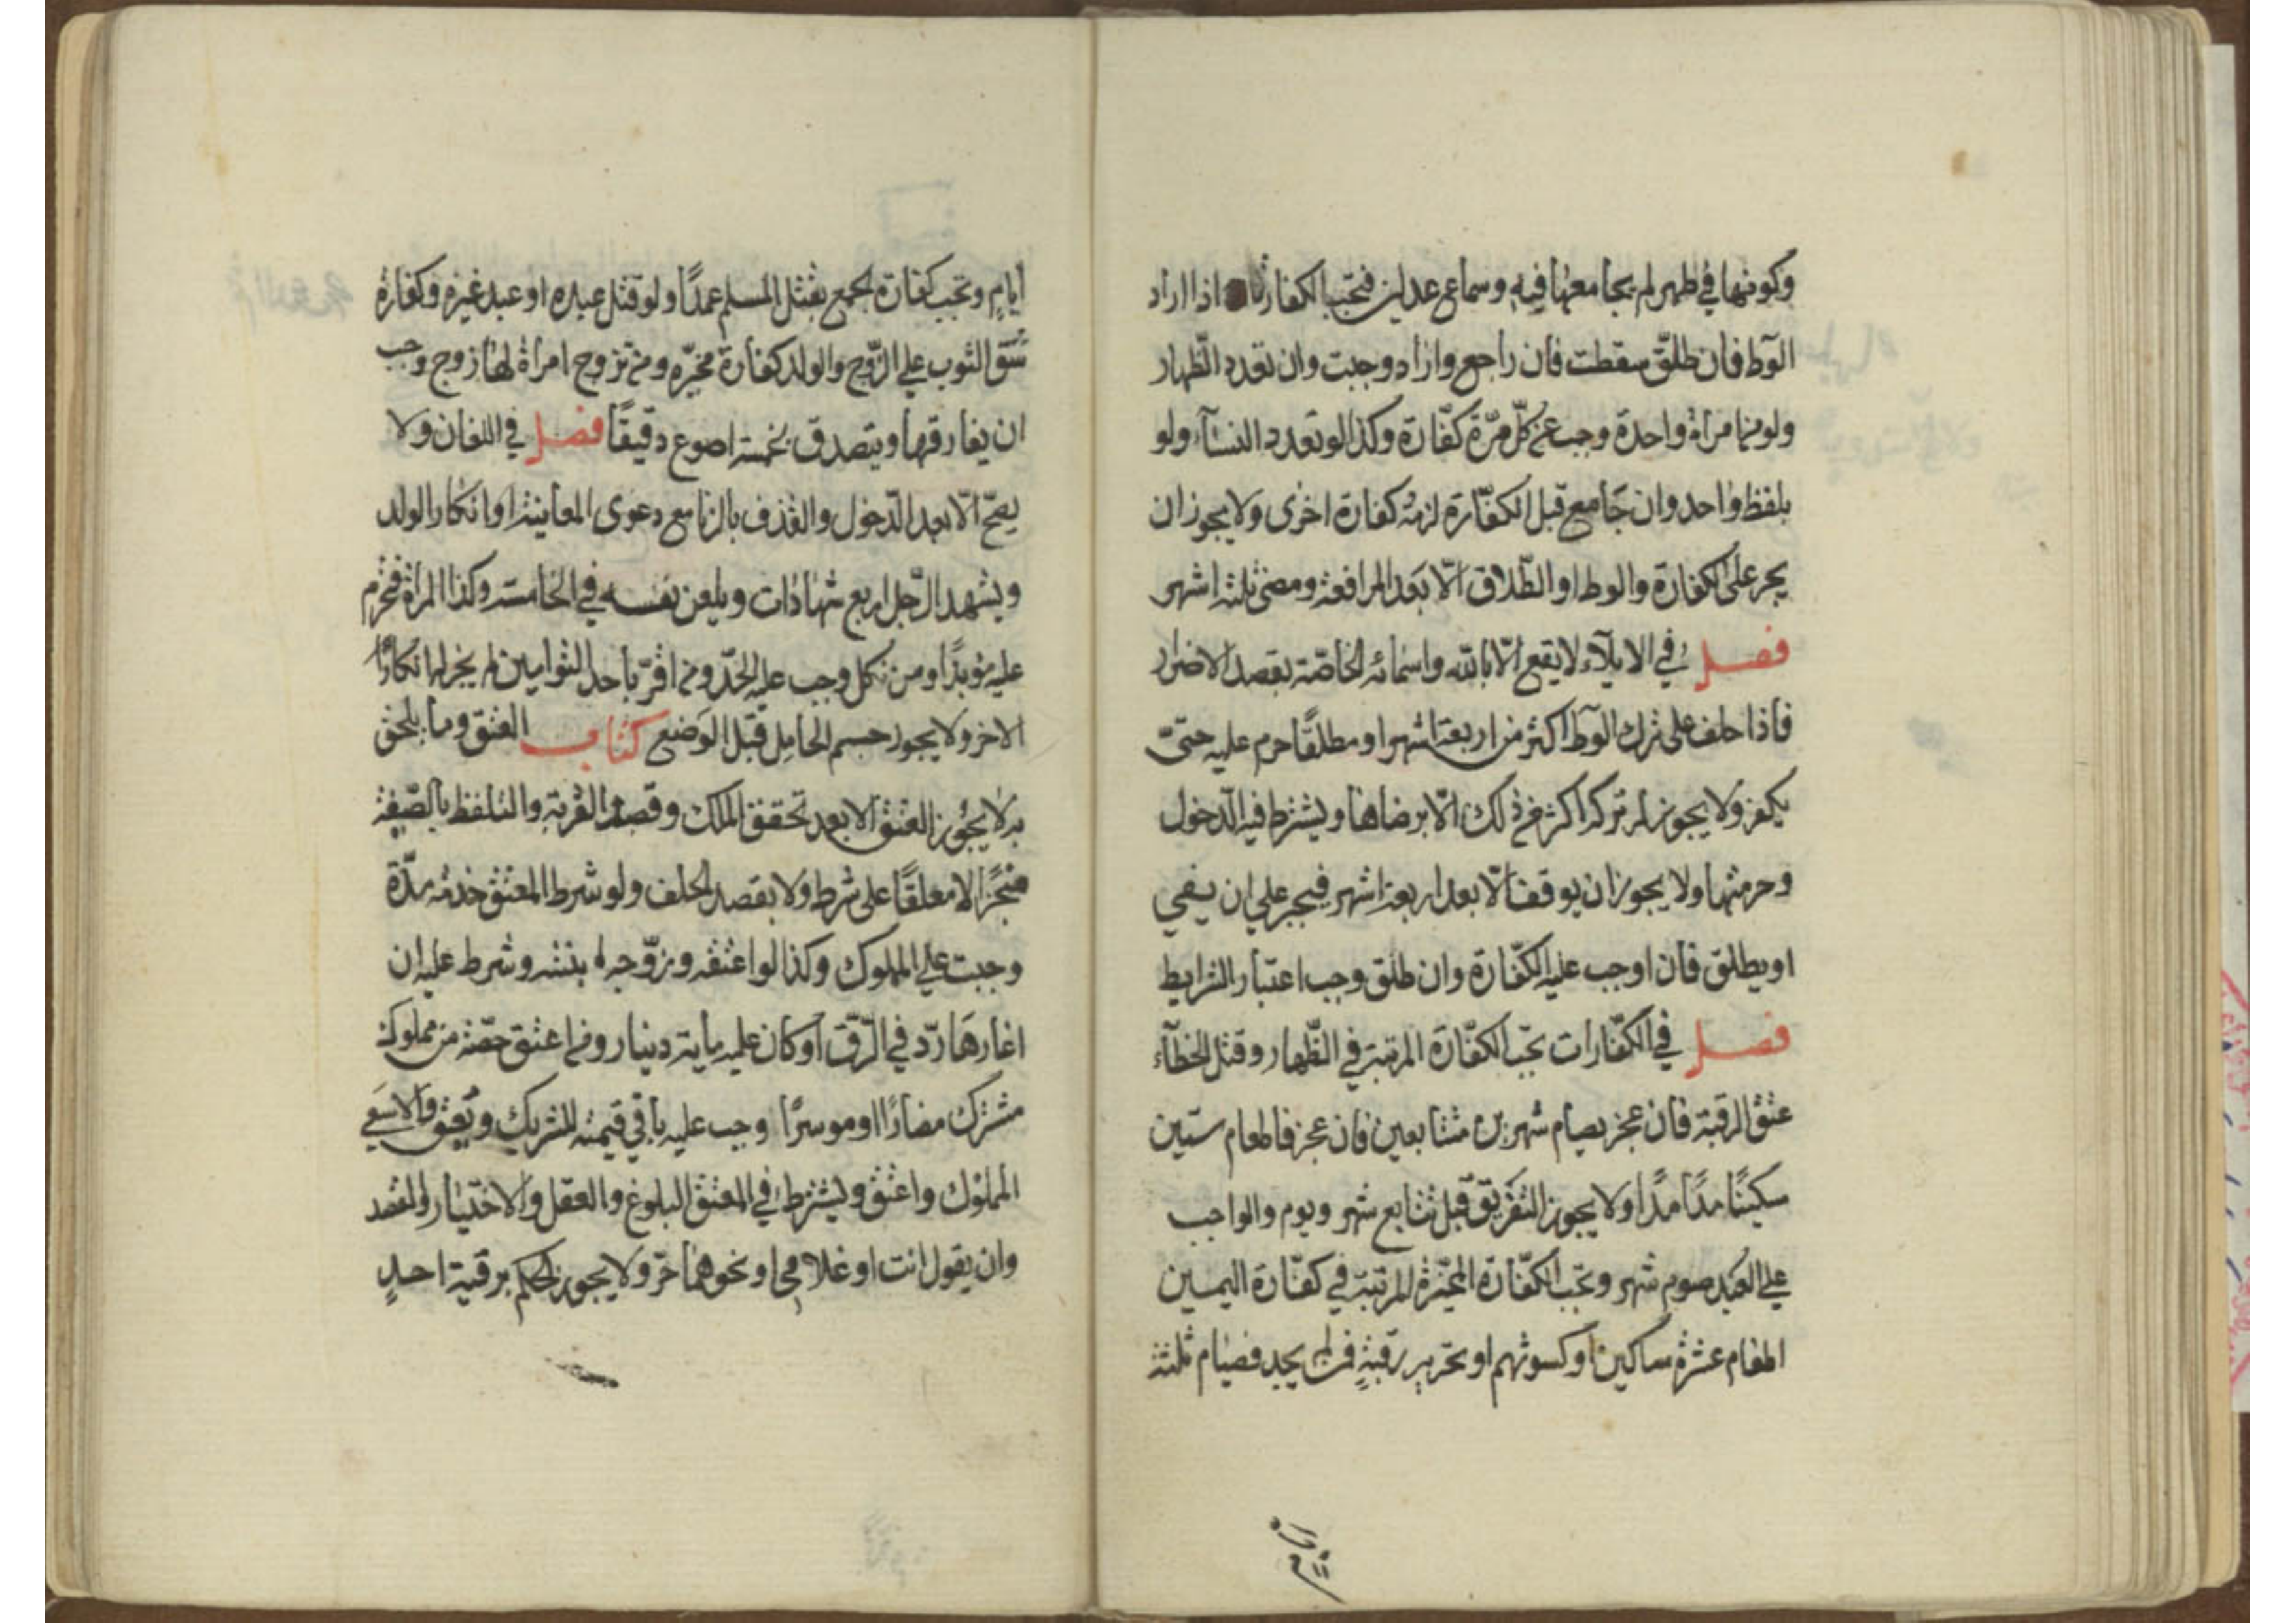 وكونها في طهر لم يجامعها فيه وسماع عدلين فتجب الكفارة اذا اراد
الوطؔ فان طلّق سقطت فان راجع واراد وجبت وان تعدد الظهار
ولو من امراة واحدة وجب عن كلّ مرّة كفّارة وكذا لو تعدد النسآء ولو
بلفظ واحد وان جامع قبل الكفّارة لزمته كفارة اخرى ولا يجوز ان
يجبر على الكفارة والوطء او الطّلاق الّا بعد المرافعة ومضى ثلثة اشهر
فصل في الايلآء لا يقع الّا بالله واسمائه الخاصّة بقصد الاضرار
فاذا حلف على ترك الوطؔ اكثر من اربعة اشهر او مطلقًا حرم عليه حتّى
يكفر ولا يجوز له تركه اكثر من ذلك الّا برضاها ويشترط فيه الدّخول
وحرمتها ولا يجوز ان يوقف الّا بعد اربعة اشهر فيجبر على ان يفي
او يطلق فان اوجب عليه الكفّارة وان طلق وجب اعتبار الشرايط
فصل في الكفّارات تجب الكفّارة المرتبة في الظّهار وقتل الخطآء
عتق الرقبة فان عجز بصيام شهرين متتابعين فان عجز فاطعام ستّين
سكينًا مدًا مدًا ولا يجوز التفريق قبل تتابع شهر ويوم والواجب
على العبد صوم شهر وتجب الكفّارة المخيّرة المرتبة في كفّارة اليمين
اطعام عشرة مساكين او كسوتهم او تحرير رقبةٍ فمن لم يجد فصيام ثلثة
ايام
ايامٍ وتجب كفارة الجمع بقتل المسلم عمدًا ولو قتل عبده او عبد غيره وكفارة
شق الثوب على الزّوج والولد كفارة مخيّرة ومن تزوج امراة لها زوج وجب
ان يفارقها ويتصدق بخمسة اصوع دقيقًا فصل في اللعان ولا
يصحّ الّا بعد الدّخول والقذف بالزنا مع دعوى المعاينة او انكار الولد
ويشهد الرّجل اربع شهادات ويلعن نفسه في الخامسة وكذا المراة فتحرم
عليه مؤبدًا ومن نكل وجب عليه الحدّ ومن اقرّ باحد التوامين لم يجز له انكار
الاخر ولا يجوز حسم الحامل قبل الوضع كتاب العتق وما يلحق
به لا يجوز العتق الا بعد تحقق الملك وقصد القربة والتلفظ بالصّيغة
منجزًا لا معلقًا على شرط ولا بقصد الحلف ولو شرط المعتق خدمة مدّة
وجبت على المملوك وكذا لو اعتقه وزوّجه بنته وشرط عليه ان
اغارها ردّ في الرّق او كان عليه ماية دينار ومن اعتق حصّة من مملوك
مشترك مضارًا او موسرًا وجب عليه باقي قيمته للشريك ويعتق والا سعى
المملوك واعتق ويشترط في المعتق البلوغ والعقل والاختيار والقصد
وان يقول انت او غلامي او نحوهما حرّ ولا يجوز الحكم برقية احدٍ